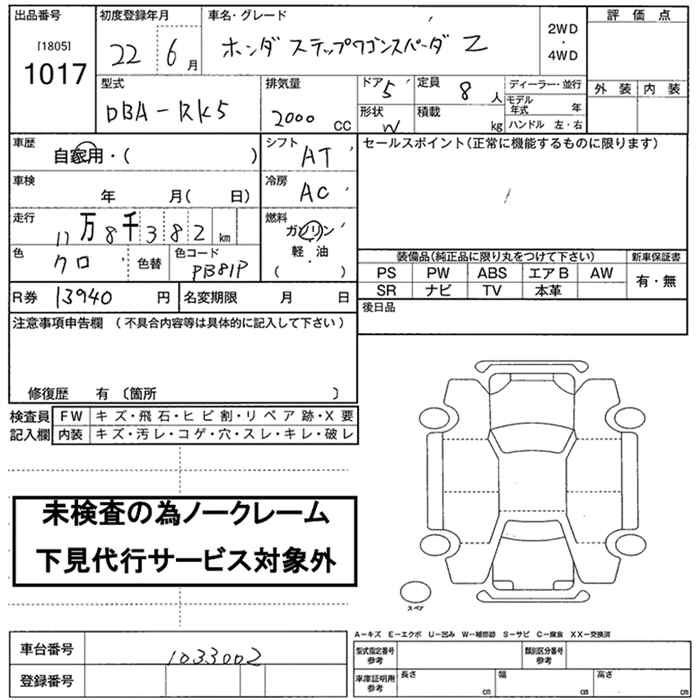 出品番号 初度登録年月 車名・グレード 評価点
[1805]
1017
22 6月 ホンダ ステップワゴンスパーダ Z
2WD
・
4WD
外装 内装
型式 排気量 ドア 定員 ディーラー・並行
DBA-RK5 2000 CC 5 8人
モデル年式 年
形状 積載
W kg ハンドル 左・右
車歴 シフト セールスポイント(正常に機能するものに限ります)
自家用・( ) AT
車検 冷房
年 月( 日) AC
走行 燃料
11万8千382km ガソリン
軽油
・
( )
色 色替 色コード
クロ PB81P
装備品(純正品に限り丸をつけて下さい) 新車保証書
PS PW ABS エアB AW 有・無
SR ナビ TV 本革
R券 13940 円 名変期限 月 日
後日品
注意事項申告欄 (不具合内容等は具体的に記入して下さい)
修復歴 有 〔箇所 〕
検査員 FW キズ・飛石・ヒビ割・リペア跡・X要
記入欄 内装 キズ・汚レ・コゲ・穴・スレ・キレ・破レ
未検査の為ノークレーム
下見代行サービス対象外
スペア
A-キズ E-エクボ U-凹み W-補修跡 S-サビ C-腐食 XX-交換済
車台番号 1033002
型式指定番号 類別区分番号
参考 参考
登録番号
車庫証明用 長さ 幅 高さ
参考 cm cm cm